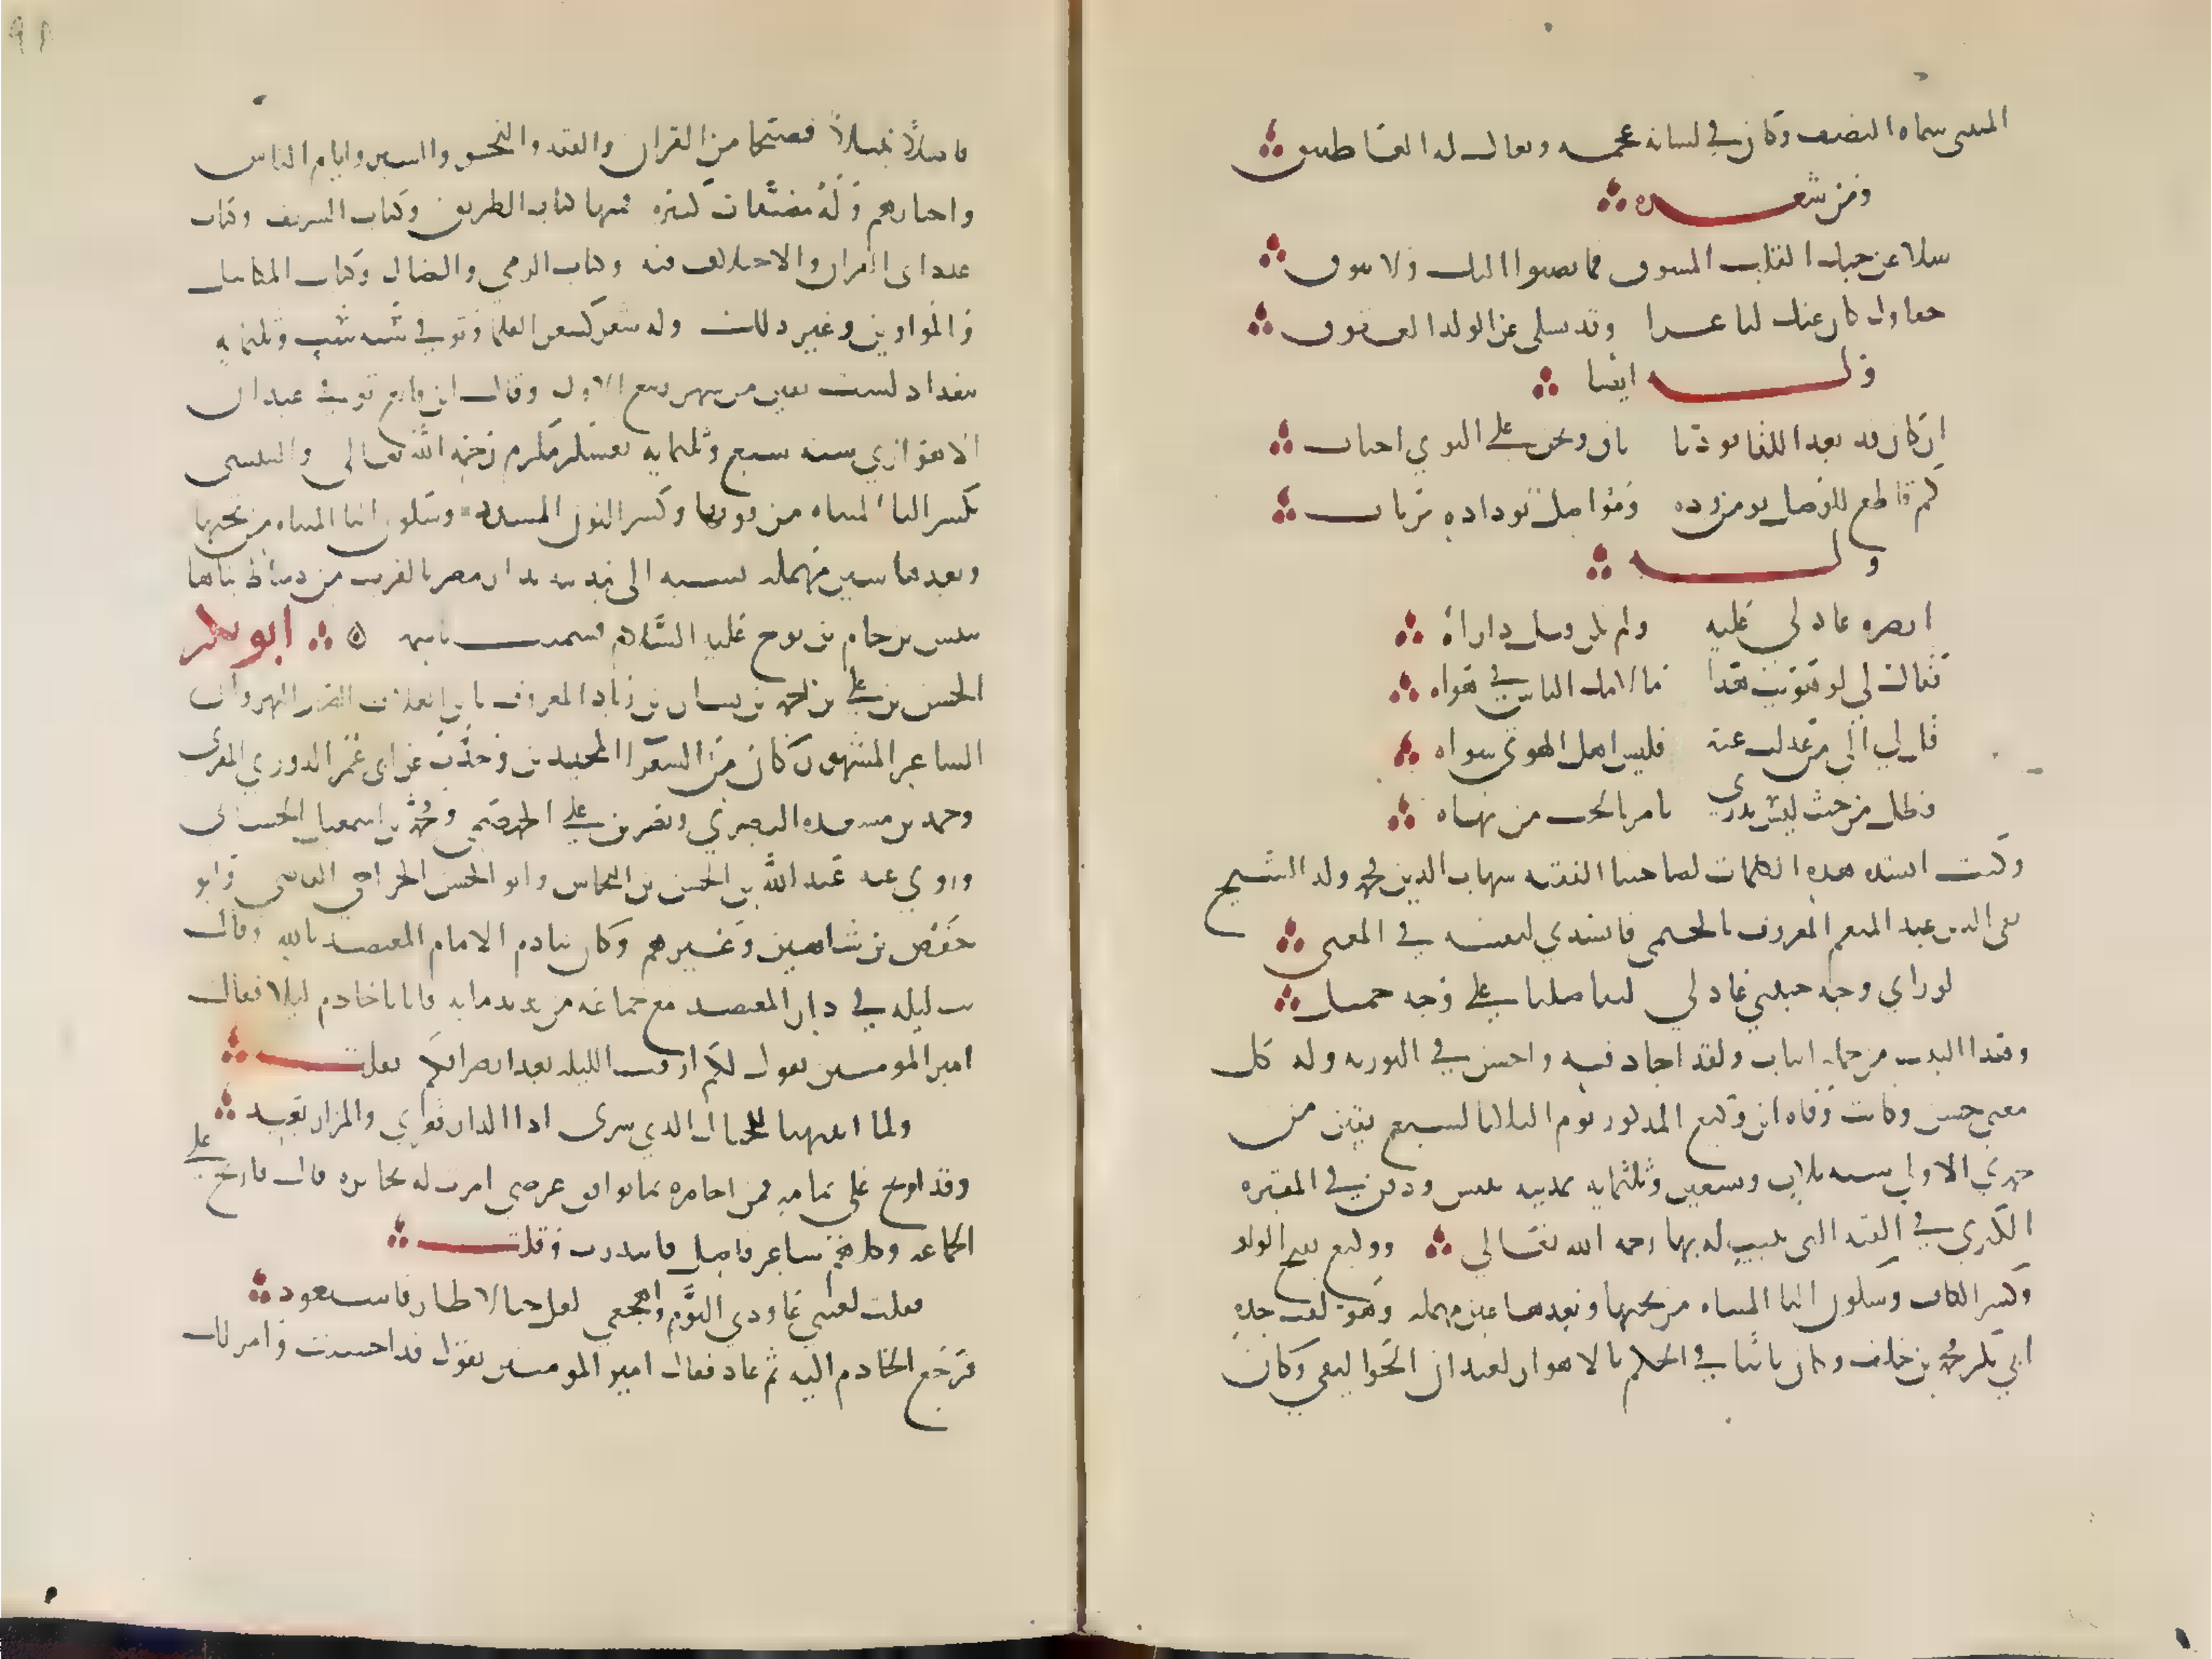 المتنبي سماه المنصف وكان في لسانه عجمه ويقال له العاطس
ومن شعره
سلا عن حبك القلب المشوق فما يصبوا اليك ولا يتوق
جفاوك كان عنك لنا عزا وقد يسلي عن الولد العقوق
وله ايضا
ان كان قد بعد اللقا فودنا باق ونحن على النوي احباب
كم قاطع للوصل يومن وده ومواصل بوداده يرتاب
وله
ابصره عاذلي عليه ولم يكن قبل ذا رآه
فقال لي لو هويت هذا ما لامك الناس في هواه
قل لي الى من عدلت عنه فليس اهل الهوى سواه
فظل من حيث ليس يدري يامر بالحب من نهاه
وكنت انشد هذه الابيات لصاحبنا الفقيه شهاب الدين محمد ولد الشيخ
تقي الدين عبد المنعم المعروف بالخيمي فانشدني لنفسه في المعنى
لو راي وجه حبيبي عاذلي لتفاصلنا على وجه جميل
وهذا البيت من جمله ابيات ولقد اجاد فيه واحسن في التوريه وله كل
معنى حسن وكانت وفاه ابن وكيع المذكور يوم الثلاثا لسبع بقين من
جمدي الاولى سنه ثلاث وتسعين وثلثمايه بمدينه تنيس ودفن في المقبره
الكبري في القبه التي بنيت له بها رحمه الله تعالى ووكيع بفتح الواو
وكسر الكاف وسكون اليا المثناه من تحتها وبعدها عين مهمله وهو لقب جده
ابي بكر محمد بن خلف وكان نائبا في الحكم بالاهواز لعبدان الجواليقي وكان
فاضلا نبيلا فصيحا من القران والفقه والنحو والسير وايام الناس
واخبارهم وله مصنفات كثيره فمنها كتاب الطريق وكتاب الشريف وكتاب
عدد اي القران والاختلاف فيه وكتاب الرمي والنضال وكتاب المكاييل
والموازين وغير ذلك وله شعر كشعر العلما وتوفي سنه ست وثلثمايه
ببغداد لست بقين من شهر ربيع الاول وقال ابن قانع توفي عبدان
الاهوازي سنه سبع وثلثمايه بعسكر مكرم رحمه الله تعالى والتنيسي
بكسر التا المثناه من فوقها وكسر النون المشدده وسكون اليا المثناه من تحتها
وبعدها سين مهمله نسبه الى مدينه بديار مصر بالقرب من دمياط بناها
تنيس بن حام بن نوح عليه السلام فسميت باسمه ابو بكر
الحسن بن علي بن احمد بن بشار بن زياد المعروف بابن العلاف الضرير النهرواني
الشاعر المشهور كان من الشعرا المجيدين وحدث عن ابي عمر الدوري المقري
وحميد بن مسعده البصري ونصر بن علي الجهضمي ومحمد بن اسمعيل الحساني
وروي عنه عبد الله بن الحسن بن النحاس وابو الحسن الجراحي القاضي وابو
حفص بن شاهين وغيرهم وكان ينادم الامام المعتضد بالله وقال
بت ليله في دار المعتضد مع جماعه من ندمايه فاتانا خادم ليلا فقال
امير المومنين يقول لكم ارقت الليله بعد انصرافكم فقلت
ولما انتهينا للخيال الذي سرى اذا الدار قفري والمزار بعيد
وقد ارتج علي تمامه فمن اجازه بما يوافق غرضي امرت له بجايزه قال فارتج على
الجماعه وكلهم شاعر فاضل فابتدرت وقلت
فقلت لعيني عاودي النوم واهجعي لعل خيالا طارقا سيعود
فرجع الخادم اليه ثم عاد فقال امير المومنين يقول قد احسنت وامر لك